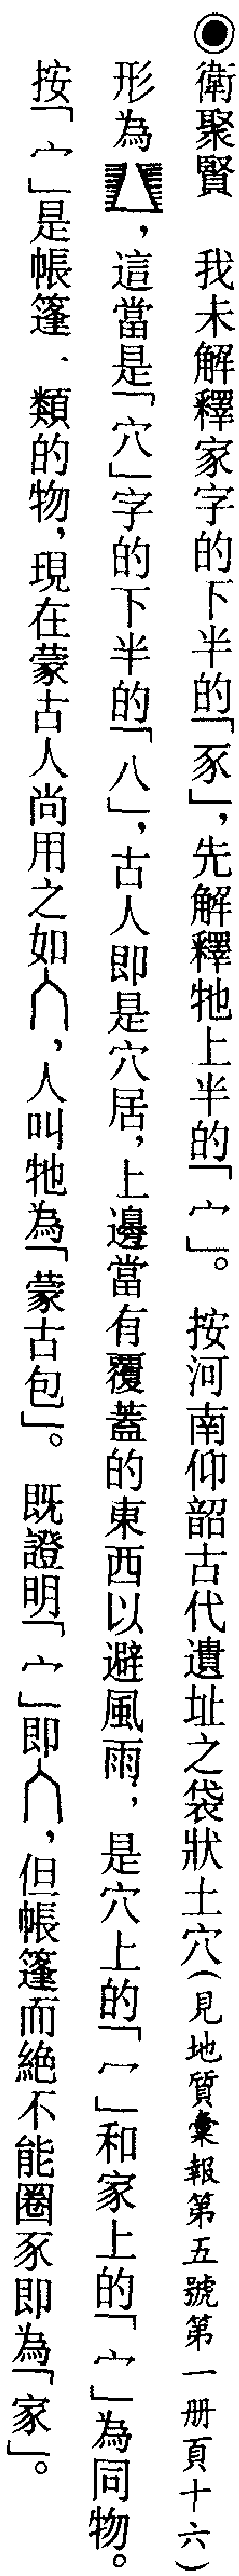 ◉衛聚賢　我未解釋家字的下半的「豕」，先解釋牠上半的「宀」。按河南仰韶古代遺址之袋狀土穴（見地質彙報第五號第一册頁十六）
形為，這當是「穴」字的下半的「八」，古人即是穴居，上邊當有覆蓋的東西以避風雨，是穴上的「冖」和家上的「宀」為同物。
按「宀」是帳篷一類的物，現在蒙古人尚用之如，人叫牠為「蒙古包」。既證明「宀」即，但帳篷而絕不能圈豕即為「家」。